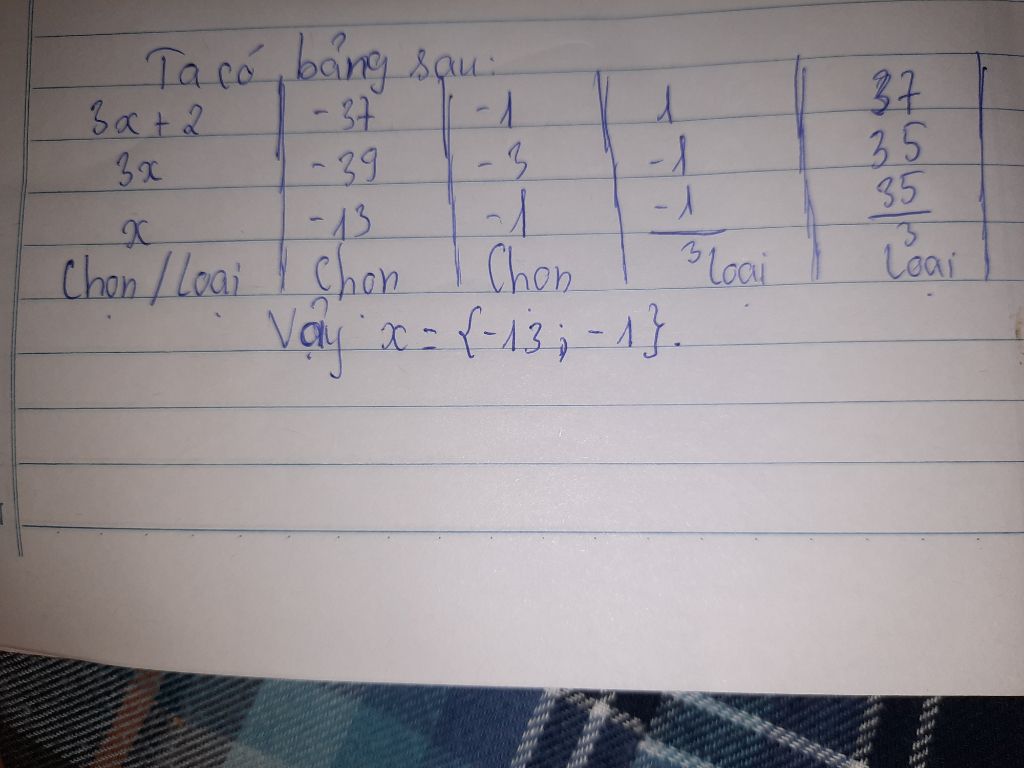 Ta có bảng sau:
3x + 2 | -37 | -1 | 1 | 37
3x | -39 | -3 | -1 | 35
x | -13 | -1 | -1/3 | 35/3
Chọn / Loại | Chọn | Chọn | Loại | Loại
Vậy x = {-13; -1}.